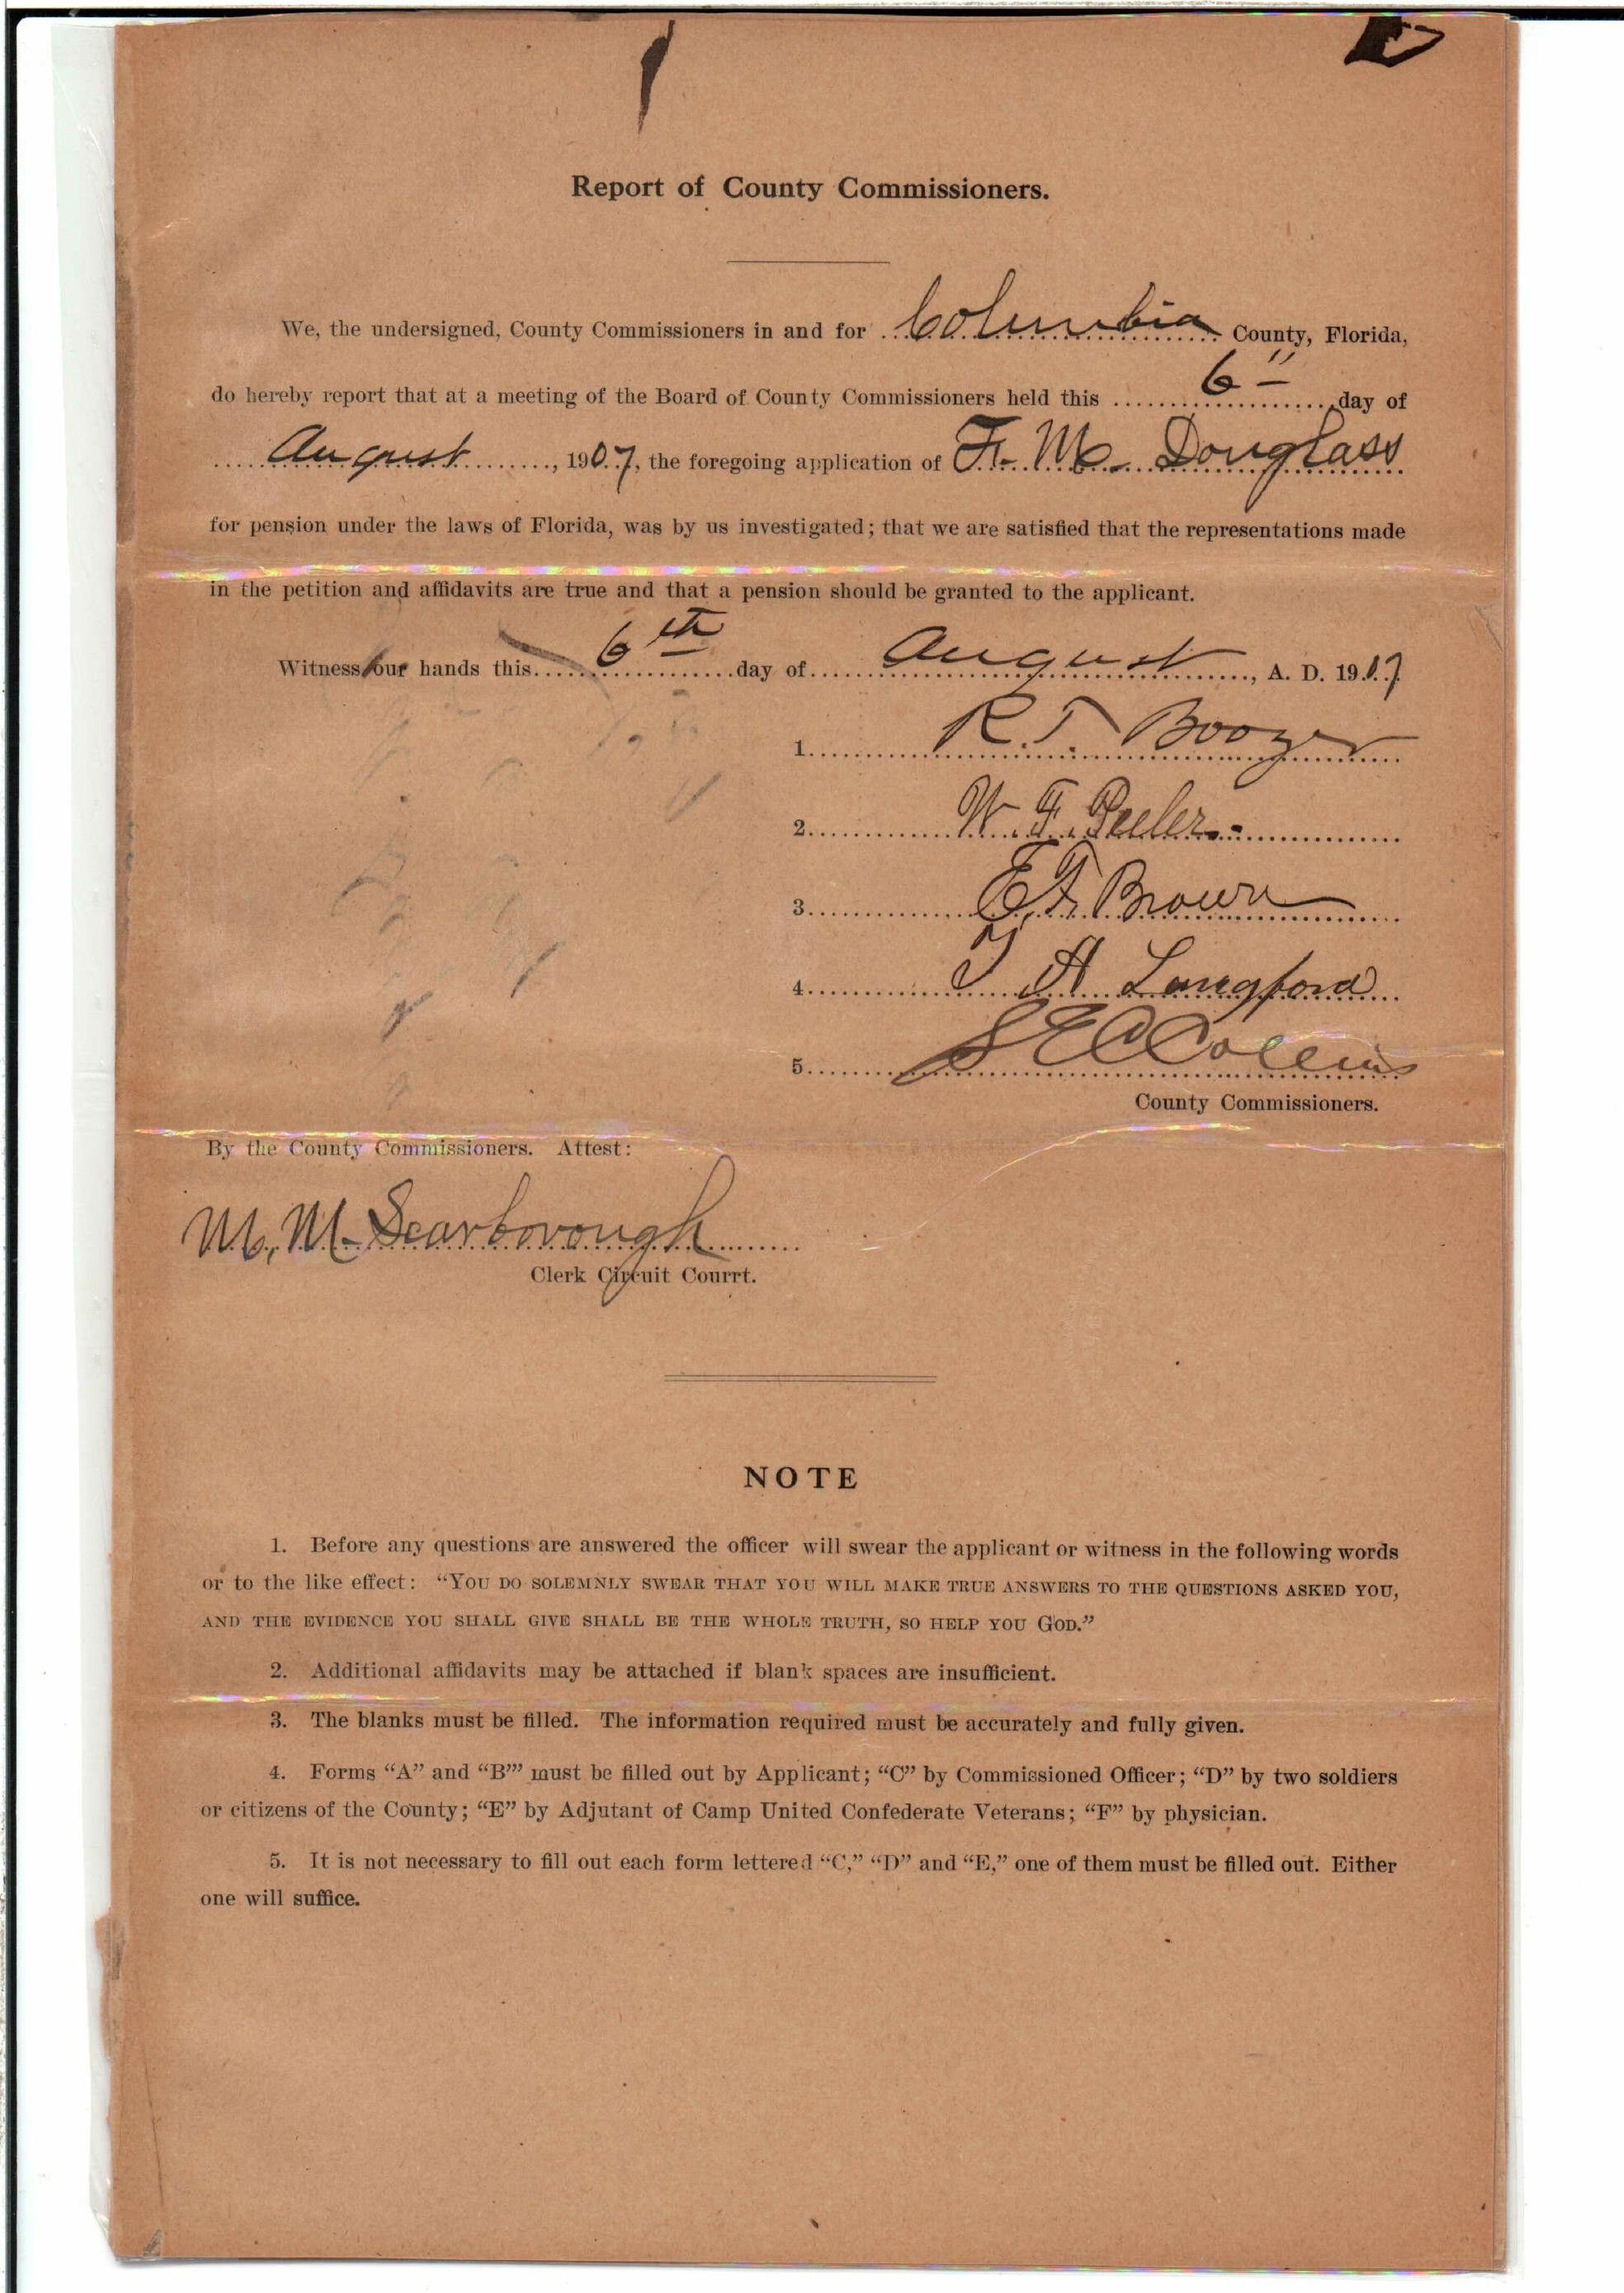 Report of County Commissioners.
We, the undersigned, County Commissioners in and for Columbia County, Florida,
do hereby report that at a meeting of the Board of County Commissioners held this 6" day of
August, 1907, the foregoing application of F. M. Douglass
for pension under the laws of Florida, was by us investigated; that we are satisfied that the representations made
in the petition and affidavits are true and that a pension should be granted to the applicant.
Witness our hands this 6th day of August, A. D. 1907.
1. R. T. Boozer
2. W. F. Peeler
3. E. F. Brown
4. T H Langford
5. S E C Collins
County Commissioners.
By the County Commissioners. Attest:
M. M. Scarborough
Clerk Circuit Courrt.
NOTE
1. Before any questions are answered the officer will swear the applicant or witness in the following words
or to the like effect: “YOU DO SOLEMNLY SWEAR THAT YOU WILL MAKE TRUE ANSWERS TO THE QUESTIONS ASKED YOU,
AND THE EVIDENCE YOU SHALL GIVE SHALL BE THE WHOLE TRUTH, SO HELP YOU GOD.”
2. Additional affidavits may be attached if blank spaces are insufficient.
3. The blanks must be filled. The information required must be accurately and fully given.
4. Forms “A” and “B”’ must be filled out by Applicant; “C” by Commissioned Officer; “D” by two soldiers
or citizens of the County; “E” by Adjutant of Camp United Confederate Veterans; “F” by physician.
5. It is not necessary to fill out each form lettered “C,” “D” and “E,” one of them must be filled out. Either
one will suffice.